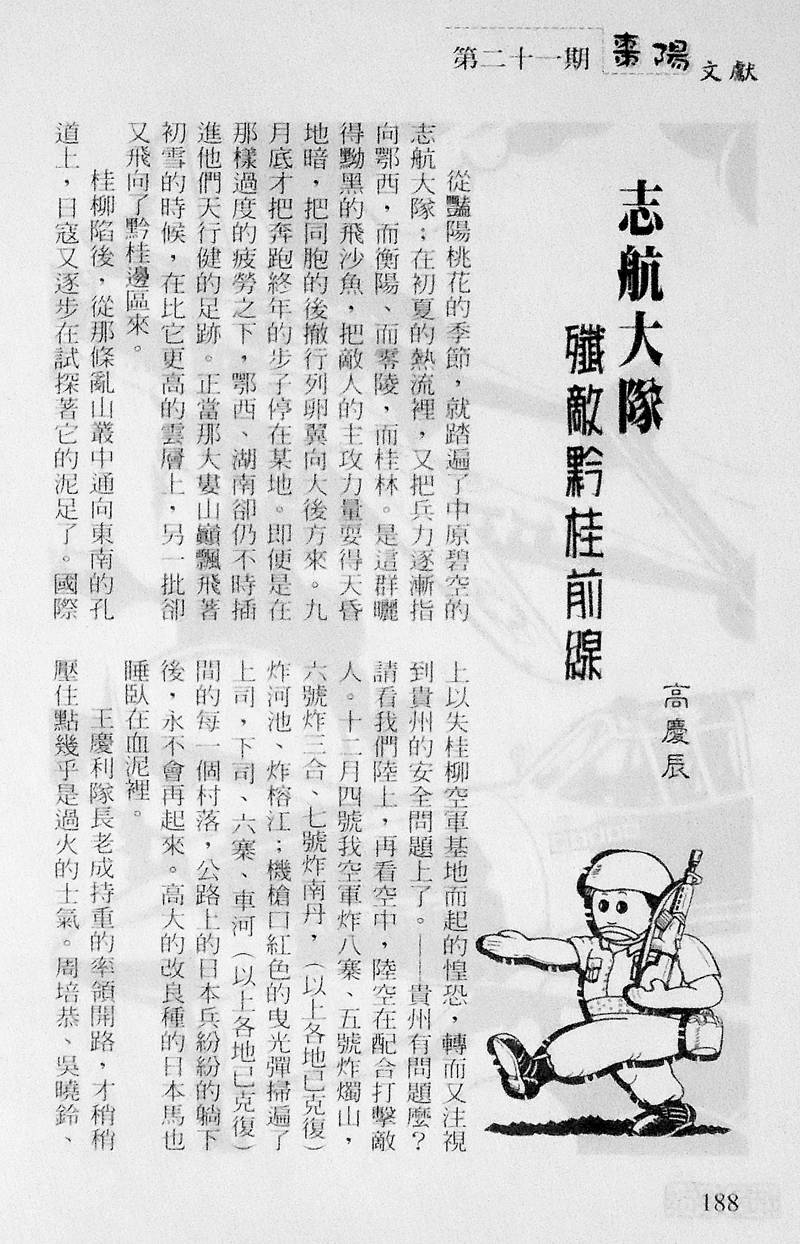 第二十一期 棗陽文獻
志航大隊
殲敵黔桂前線
高慶辰
從豔陽桃花的季節，就踏遍了中原碧空的
志航大隊；在初夏的熱流裡，又把兵力逐漸指
向鄂西，而衡陽、而零陵，而桂林。是這群曬
得黝黑的飛沙魚，把敵人的主攻力量耍得天昏
地暗，把同胞的後撤行列卵翼向大後方來。九
月底才把奔跑終年的步子停在某地。即便是在
那樣過度的疲勞之下，鄂西、湖南卻仍不時插
進他們天行健的足跡。正當那大婁山巔飄飛著
初雪的時候，在比它更高的雲層上，另一批卻
又飛向了黔桂邊區來。
桂柳陷後，從那條亂山叢中通向東南的孔
道上，日寇又逐步在試探著它的泥足了。國際
上以失桂柳空軍基地而起的惶恐，轉而又注視
到貴州的安全問題上了。——貴州有問題麼？
請看我們陸上，再看空中，陸空在配合打擊敵
人。十二月四號我空軍炸八寨、五號炸燭山，
六號炸三合、七號炸南丹，（以上各地已克復）
炸河池、炸榕江；機槍口紅色的曳光彈掃遍了
上司，下司、六寨、車河（以上各地已克復）
間的每一個村落，公路上的日本兵紛紛的躺下
後，永不會再起來。高大的改良種的日本馬也
睡臥在血泥裡。
王慶利隊長老成持重的率領開路，才稍稍
壓住點幾乎是過火的士氣。周培恭、吳曉鈴、
188